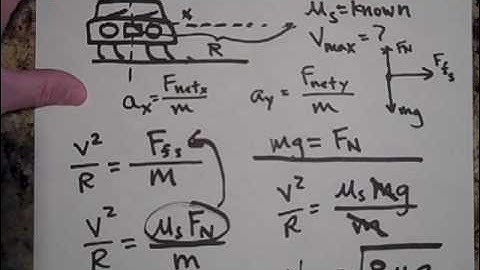 x
R
μs = known
Vmax = ?
FN
Ffs
mg
ax = Fnetx/m
ay = Fnety/m
v²/R = Ffs/m
mg = FN
v²/R = μsFN/m
v²/R = μsmg/m